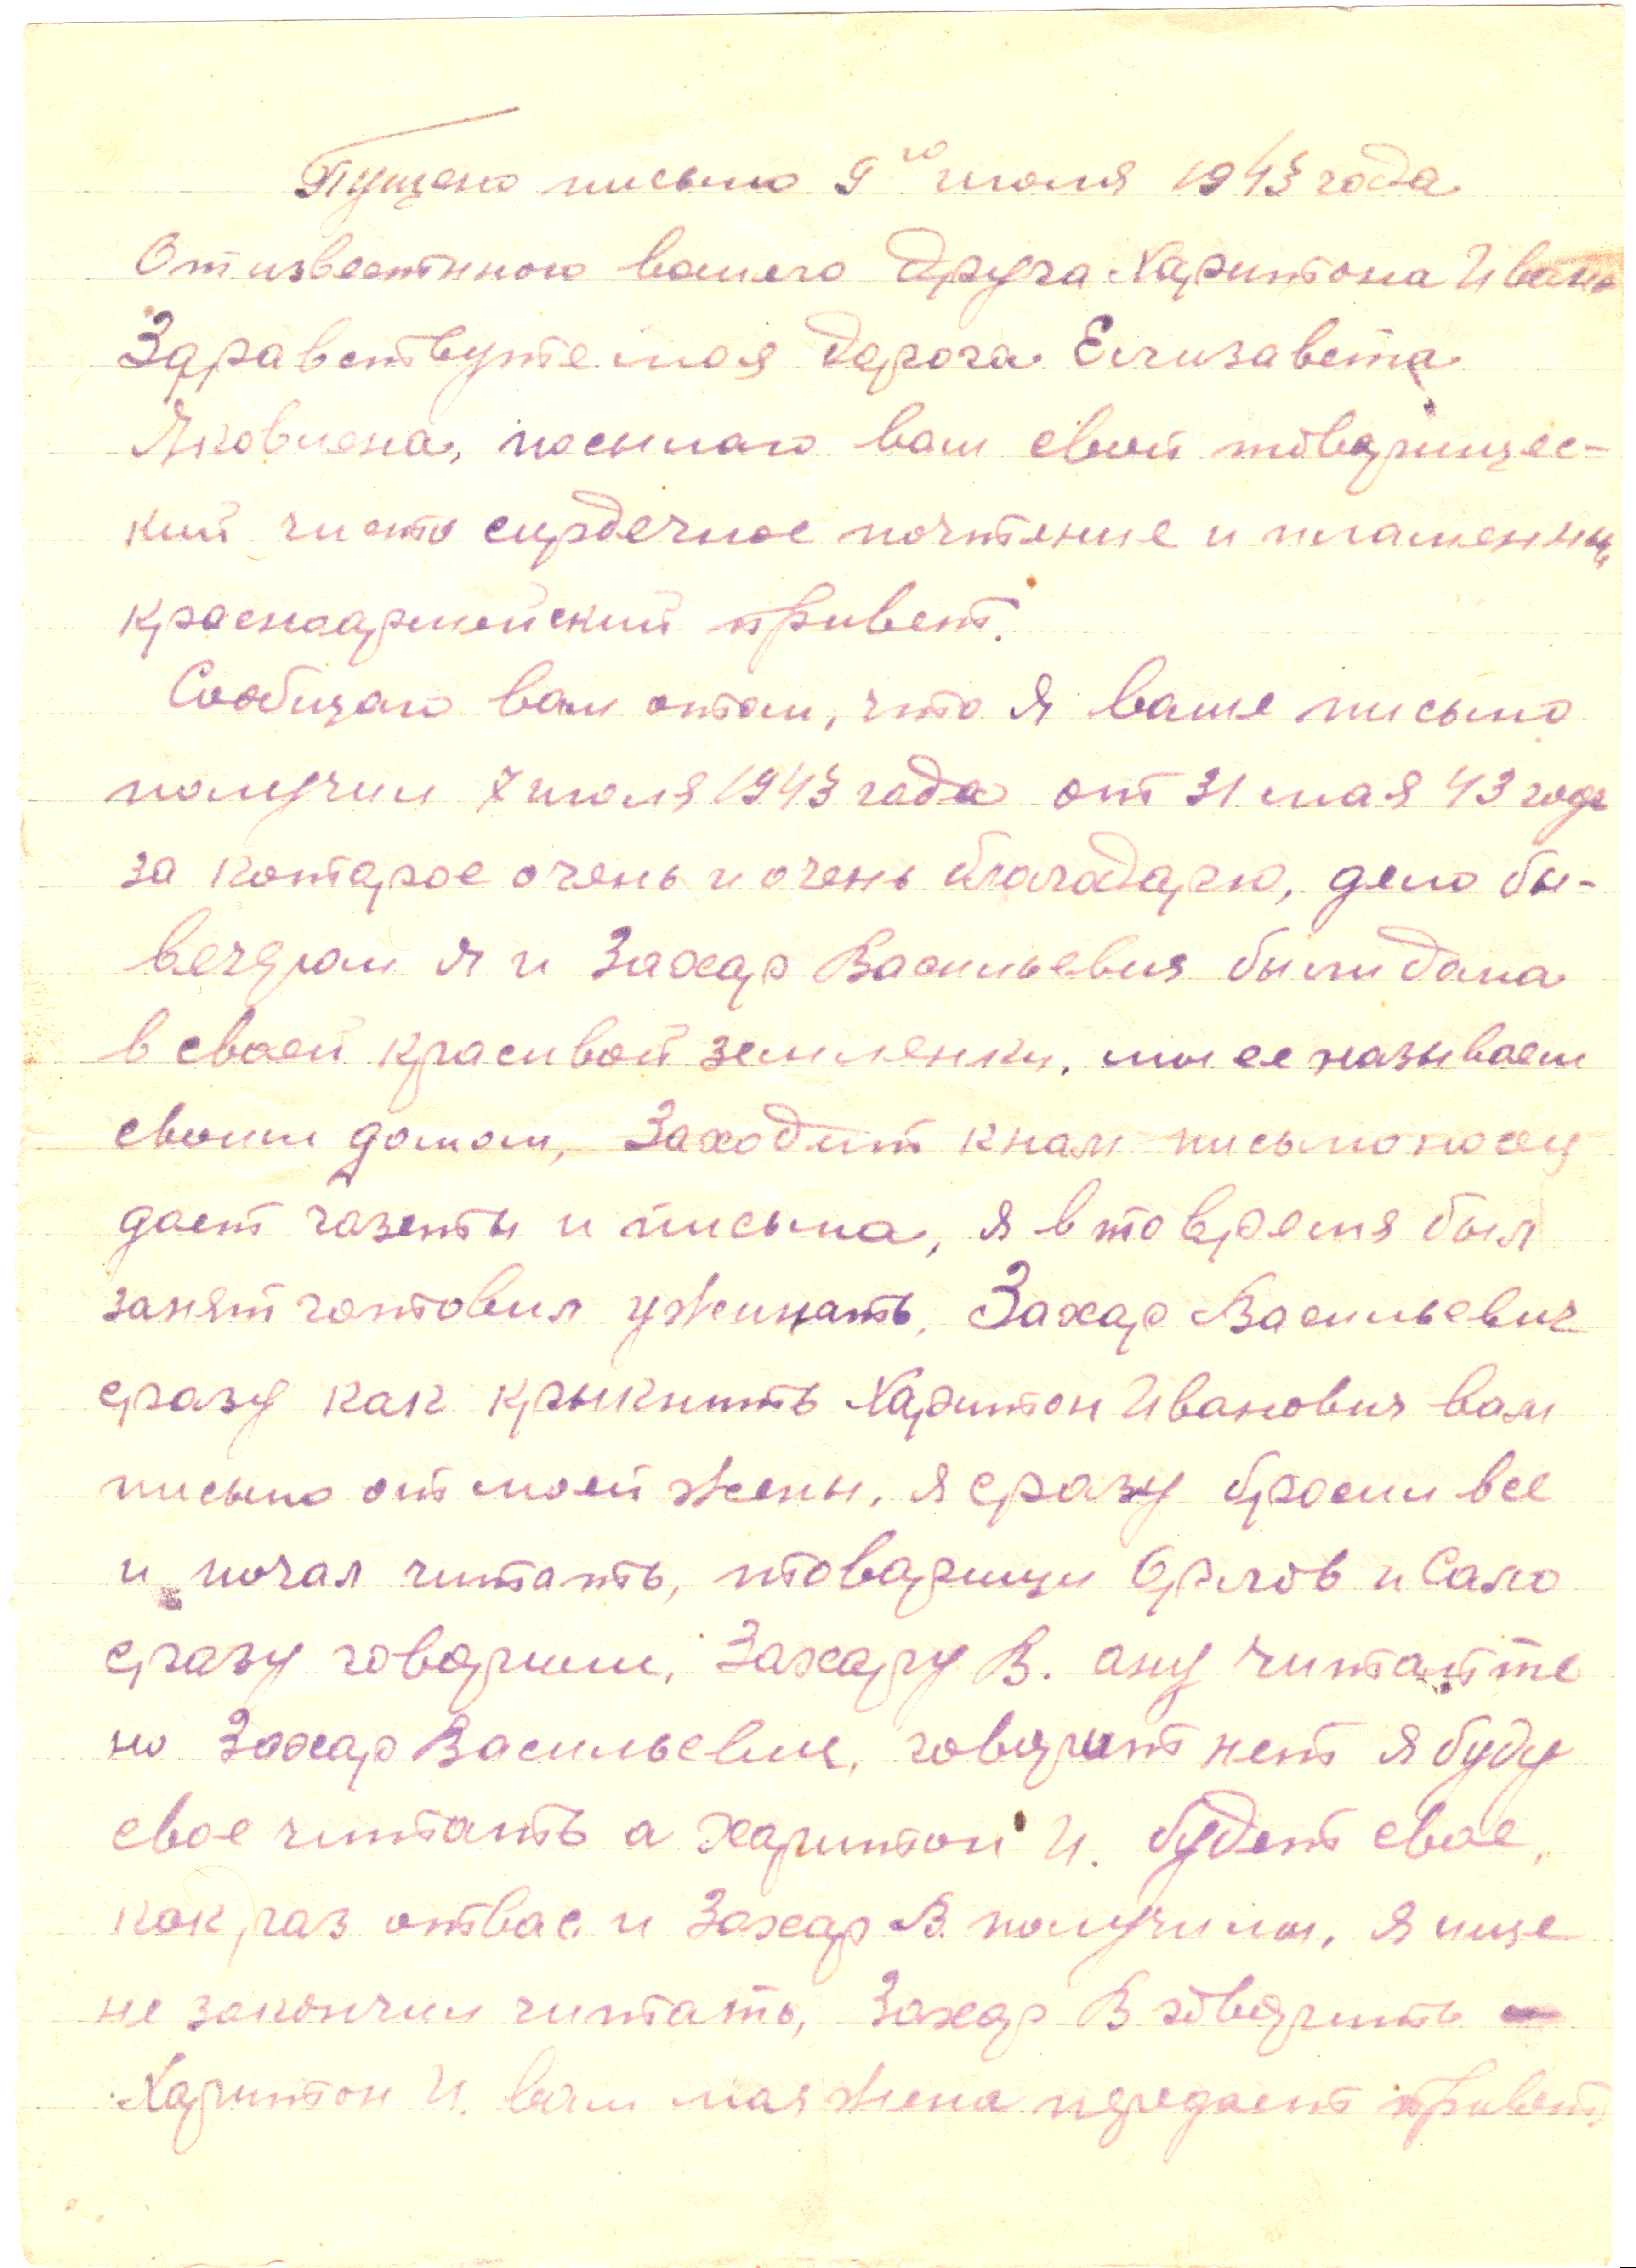 Пущено письмо 9го июля 1943 года
От известного вашего друга Харитона Ивано
Здравствуте моя дарога Елизавета
Яковлена, посылаю вам свой товарищес-
кий чисто сирдечное почтение и пламенны
красноармейский привет.
Сообщаю вам отом, что я ваше письмо
получил 7 июля 1943 года от 31 мая 43 года
за которое очень и очень благодарю, дело бы-
вечером я и Захар Васильевич были дома
в своей красивой землянки, мы ее называем
своим домом, Заходит кнам письмоносец
дает газеты и письма, я вто время был
занят готовил ужинать, Захар Васильевич
сразу как крыкнить Харитон Иванович вам
письмо от моей жены, я сразу бросил все
и почал читать, товарищи Орлов и Сало
сразу говорили, Захару В. ану читайте
но Захар Васильевич, говорит нет я буду
свое читать а Харитон И. будет свое,
как раз отвас и Захар В. получилы, я ище
не закончил читать, Захар В говорить –
Харитон И. вам мая жена передает привет